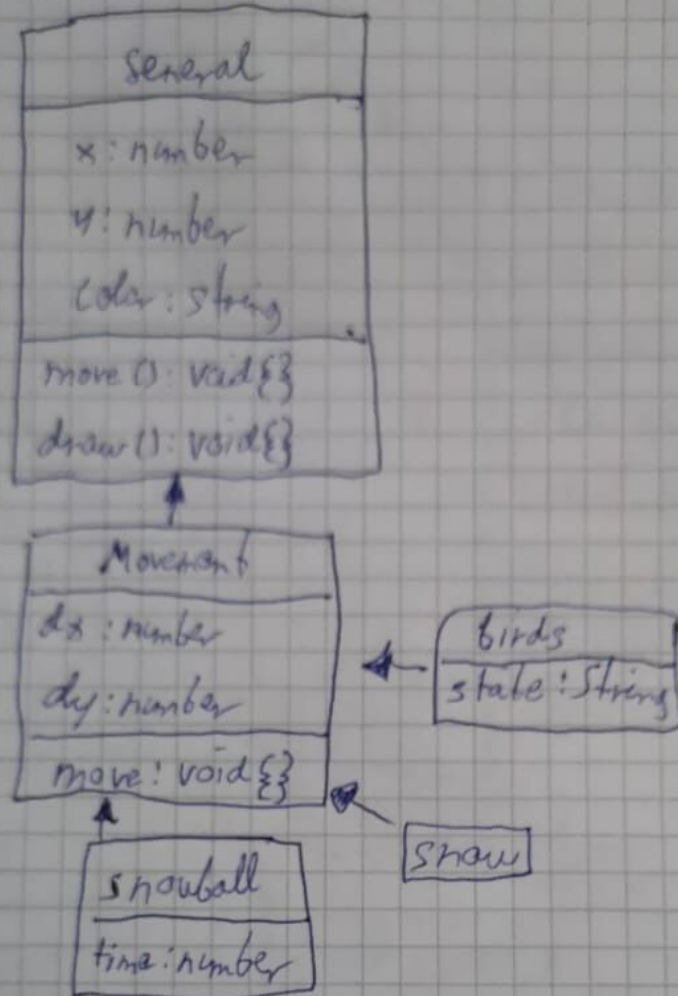 General
x: number
y: number
color: string
move(): void{}
draw(): void{}
Movement
dx: number
dy: number
move: void{}
birds
state: String
snow
snowball
time: number